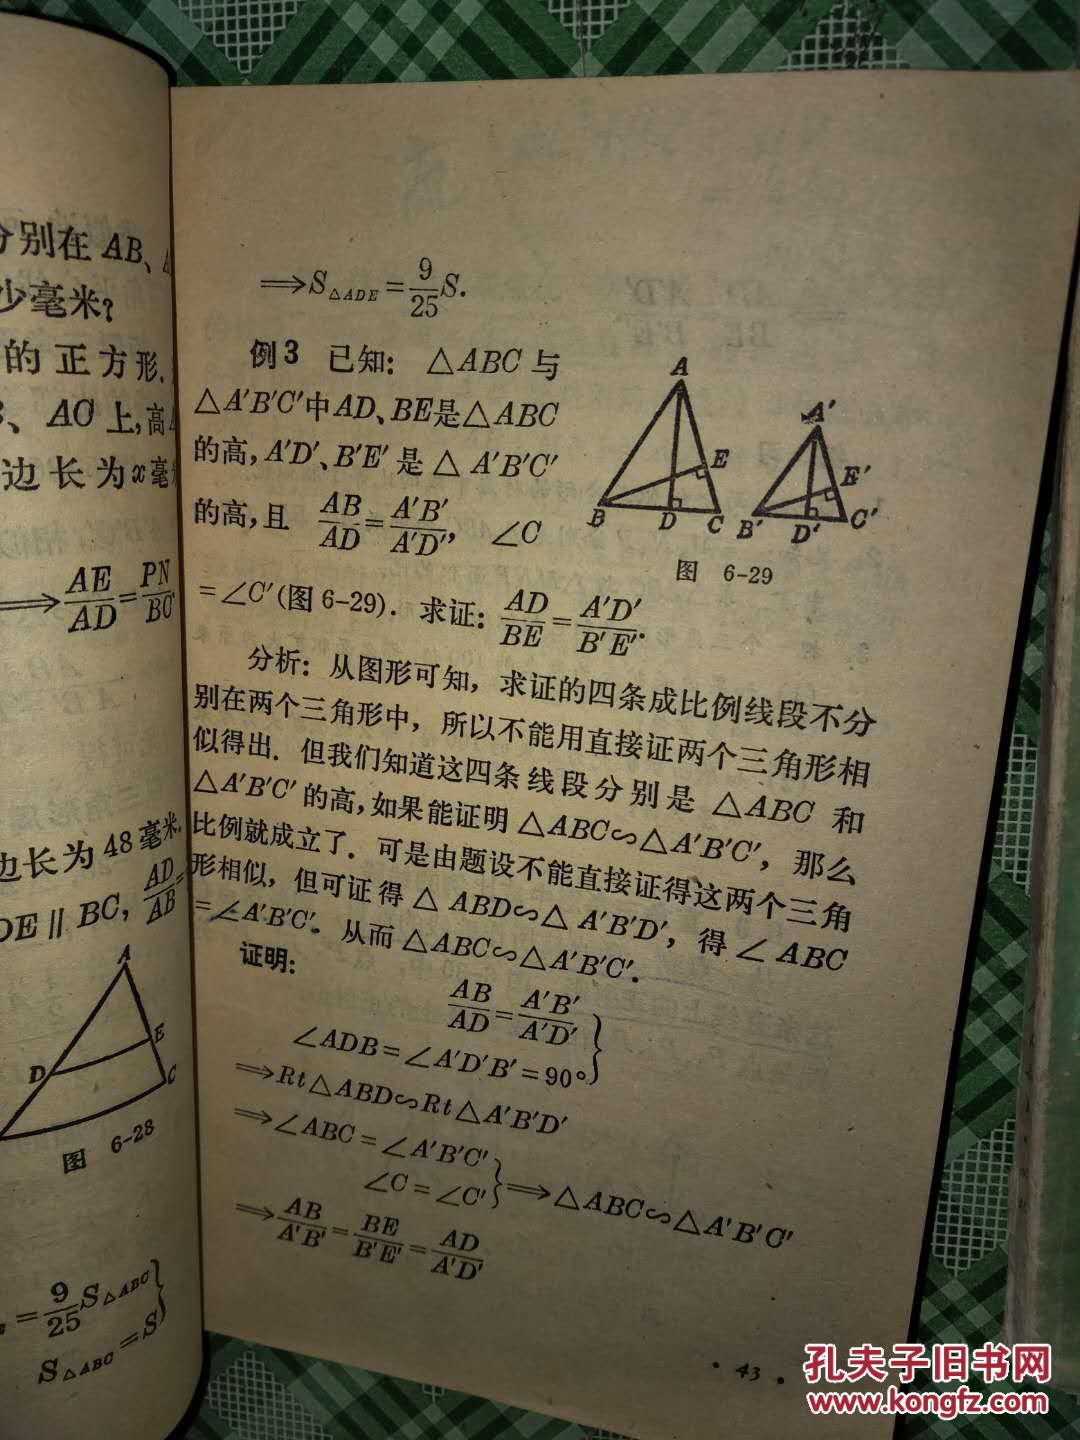 分别在 AB、
少毫米?
的正方形.
、AC 上,高
边长为x毫
⟹AE/AD=PN/BC
边长为48毫米.
DE∥BC, AD/AB=
A
D
E
C
图 6-28
=9/25 S△ABC
S△ABC=S
⟹S△ADE=9/25 S.
例3 已知: △ABC 与
△A′B′C′中AD、BE是△ABC
的高, A′D′、B′E′ 是 △ A′B′C′
的高, 且 AB/AD=A′B′/A′D′, ∠C
=∠C′(图 6-29). 求证: AD/BE=A′D′/B′E′.
A
B
D
C
E
A′
B′
D′
C′
E′
图 6-29
分析: 从图形可知, 求证的四条成比例线段不分
别在两个三角形中, 所以不能用直接证两个三角形相
似得出. 但我们知道这四条线段分别是 △ABC 和
△A′B′C′ 的高, 如果能证明 △ABC∽△A′B′C′, 那么
比例就成立了. 可是由题设不能直接证得这两个三角
形相似, 但可证得 △ ABD∽△ A′B′D′, 得 ∠ ABC
=∠A′B′C′. 从而 △ABC∽△A′B′C′.
证明:
AB/AD=A′B′/A′D′
∠ADB=∠A′D′B′=90°}
⟹Rt△ABD∽Rt△A′B′D′
⟹∠ABC=∠A′B′C′
∠C=∠C′}⟹△ABC∽△A′B′C′
⟹AB/A′B′=BE/B′E′=AD/A′D′
• 43 •
孔夫子旧书网
www.kongfz.com